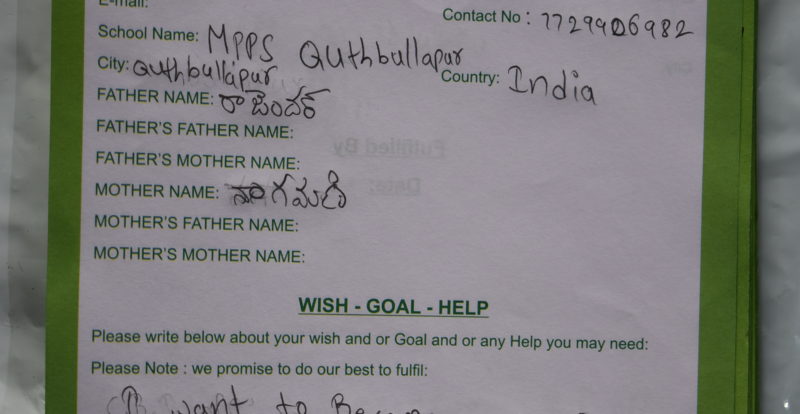 E-mail:
Contact No : 7729906982
School Name: MPPS Quthbullapur
City: Quthbullapur Country: India
FATHER NAME: రాజేందర్
FATHER'S FATHER NAME:
FATHER'S MOTHER NAME:
MOTHER NAME: నాగమణి
MOTHER'S FATHER NAME:
MOTHER'S MOTHER NAME:
WISH - GOAL - HELP
Please write below about your wish and or Goal and or any Help you may need:
Please Note : we promise to do our best to fulfil:
I want to